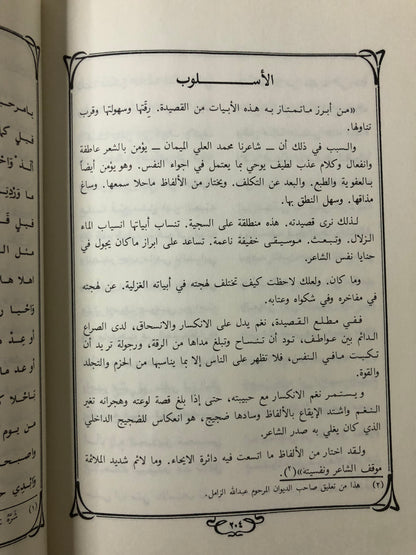 الأســـلوب
«من أبرز ماتمتاز به هذه الأبيات من القصيدة. رقّتها وسهولتها وقرب
تناولها.
والسبب في ذلك أن ــ شاعرنا محمد العلي الميمان ــ يؤمن بالشعر عاطفة
وانفعال وكلام عذب لطيف يوحي بما يعتمل في اجواء النفس. وهو يؤمن أيضاً
بالعفوية والطبع. والبعد عن التكلف. ويختار من الألفاظ ماحلا سمعها. وساغ
مذاقها. وسهل النطق بها.
لـذلك نرى قصيدته. هذه منطلقة على السجية. تنساب أبياتها انسياب الماء
الزلال. وتبعث. موسيقى خفيفة ناعمة. تساعد على ابراز ماكان يجول في
حنايا نفس الشاعر.
وما كان. ولعلك لاحظت كيف تختلف لهجته في أبياته الغزلية. عن لهجته
في مفاخره وفي شكواه وعتابه.
ففي مطلع القصيدة، نغم يدل على الانكسار والانسحاق، لدى الصراع
الدائم بين عواطف، تود أن تنساح وتبلغ مداها من الرقة، ورجولة تريد أن
تكبت مافي النفس، فلا تظهر على الناس إلا بما يناسبها من الحزم والتجلد
والقوة.
ويستمر نغم الانكسار مع حبيبته، حتى إذا بلغ قصة لوعته وهجرانه تغير
النغم واشتد الإيقاع بالألفاظ وسادها ضجيج، هو انعكاس للضجيج الداخلي
الذي كان يغلي به صدر الشاعر.
ولقد اختار من الألفاظ ما اتسعت فيه دائرة الايحاء. وما لائم شديد الملائمة
موقف الشاعر ونفسيته»(٢).
(٢) هذا من تعليق صاحب الديوان المرحوم عبدالله الزامل.
٢٠٤